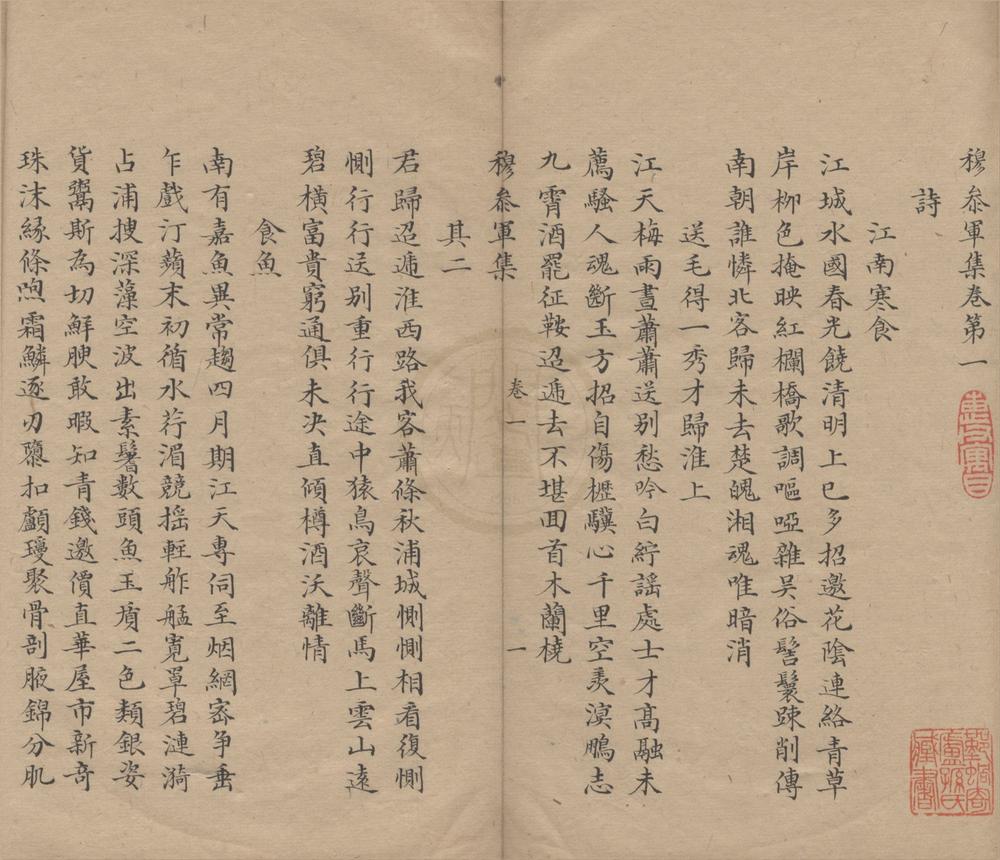 穆叅軍集卷第一
詩
江南寒食
江城水國春光饒清明上巳多招邀花隂連絡青草
岸栁色掩映紅欄橋歌調嘔啞雜吳俗髻鬟踈削傳
南朝誰憐北客歸未去楚魄湘魂唯暗消
送毛得一秀才歸淮上
江天梅雨晝蕭蕭送别愁吟白紵謡處士才髙融未
薦騷人魂斷玉方招自傷櫪驥心千里空羨溟鵬志
九霄酒罷征鞍迢遞去不堪囬首木蘭橈
穆叅軍集
卷一
一
其二
君歸迢遞淮西路我客蕭條秋浦城惻惻相看復惻
惻行行送别重行行途中猿鳥哀聲斷馬上雲山遠
碧橫富貴窮通俱未决直傾樽酒沃離情
食魚
南有嘉魚異常趨四月期江天專伺至烟網宻争垂
乍戲汀蘋末初循水荇湄競揺輕舴艋寛罩碧漣漪
占浦捜深藻空波出素鬐數頭魚玉㡳二色類銀姿
貨鬻斯為切鮮腴敢暇知青錢邀價直華屋市新竒
珠沫緣條喣霜鱗逐刃隳扣顱瓊聚骨剖腋錦分肌